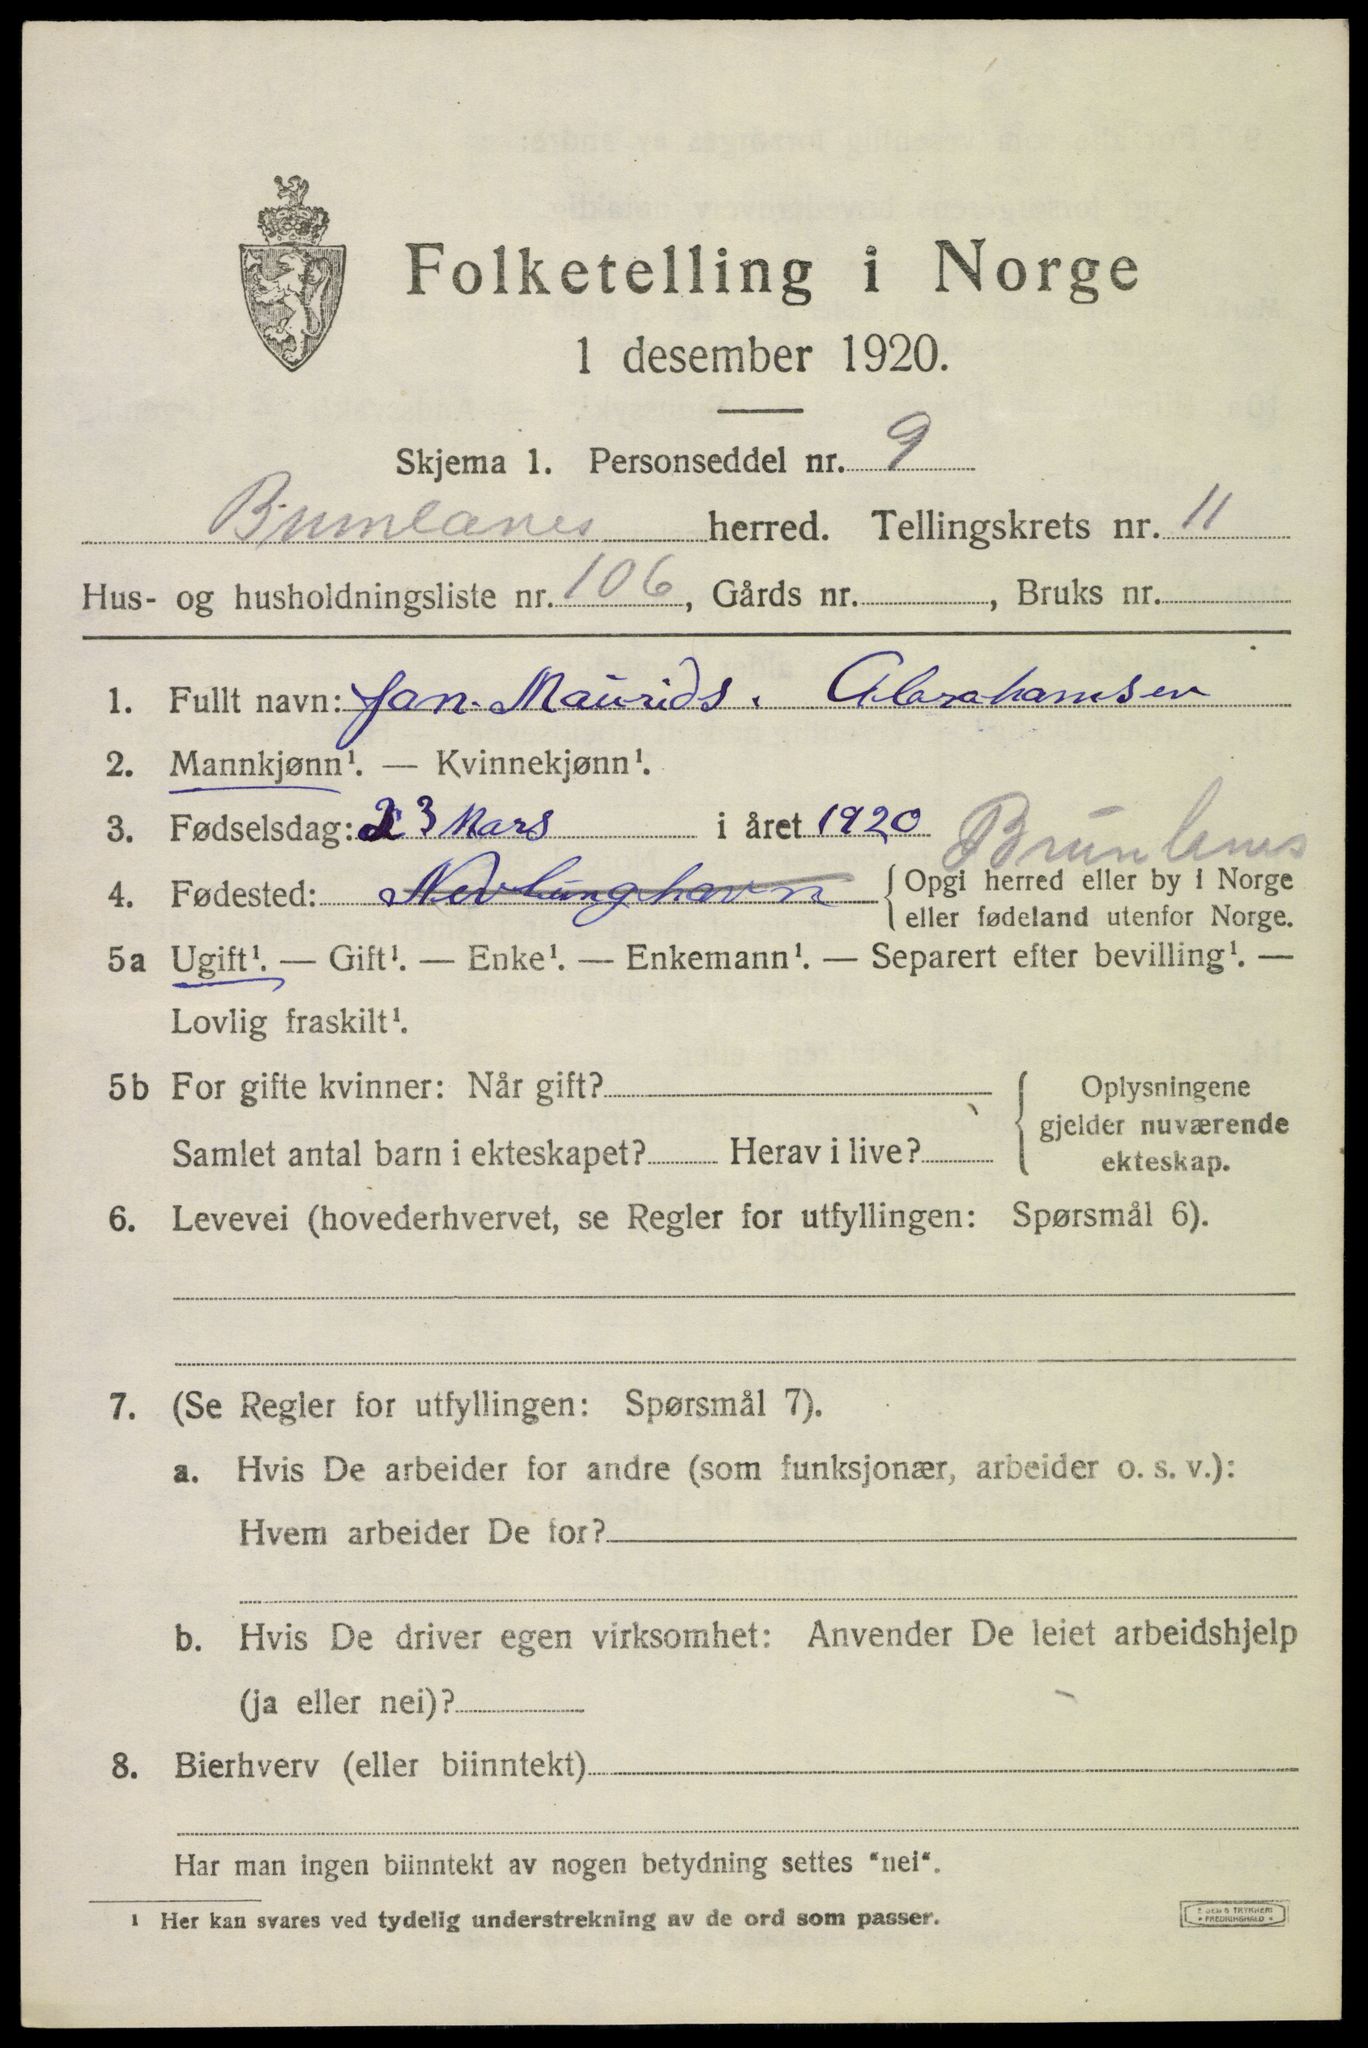 Folketelling i Norge
1 desember 1920.
Skjema 1. Personseddel nr. 9
Brunlanes herred. Tellingskrets nr. 11
Hus- og husholdningsliste nr. 106, Gårds nr. , Bruks nr.
1. Fullt navn: Jan Maurids. Abrahamsen
2. Mannkjønn¹. — Kvinnekjønn¹.
3. Fødselsdag: 23 Mars i året 1920 Brunlanes
4. Fødested: Nevlunghavn { Opgi herred eller by i Norge
eller fødeland utenfor Norge.
5a Ugift¹. — Gift¹. — Enke¹. — Enkemann¹. — Separert efter bevilling¹. —
Lovlig fraskilt¹.
5b For gifte kvinner: Når gift?
Samlet antal barn i ekteskapet? Herav i live?
{ Oplysningene
gjelder nuværende
ekteskap.
6. Levevei (hovederhvervet, se Regler for utfyllingen: Spørsmål 6).
7. (Se Regler for utfyllingen: Spørsmål 7).
a. Hvis De arbeider for andre (som funksjonær, arbeider o. s. v.):
Hvem arbeider De for?
b. Hvis De driver egen virksomhet: Anvender De leiet arbeidshjelp
(ja eller nei)?
8. Bierhverv (eller biinntekt)
Har man ingen biinntekt av nogen betydning settes "nei".
¹ Her kan svares ved tydelig understrekning av de ord som passer.
TRYKKERI
FREDRIKSHALD